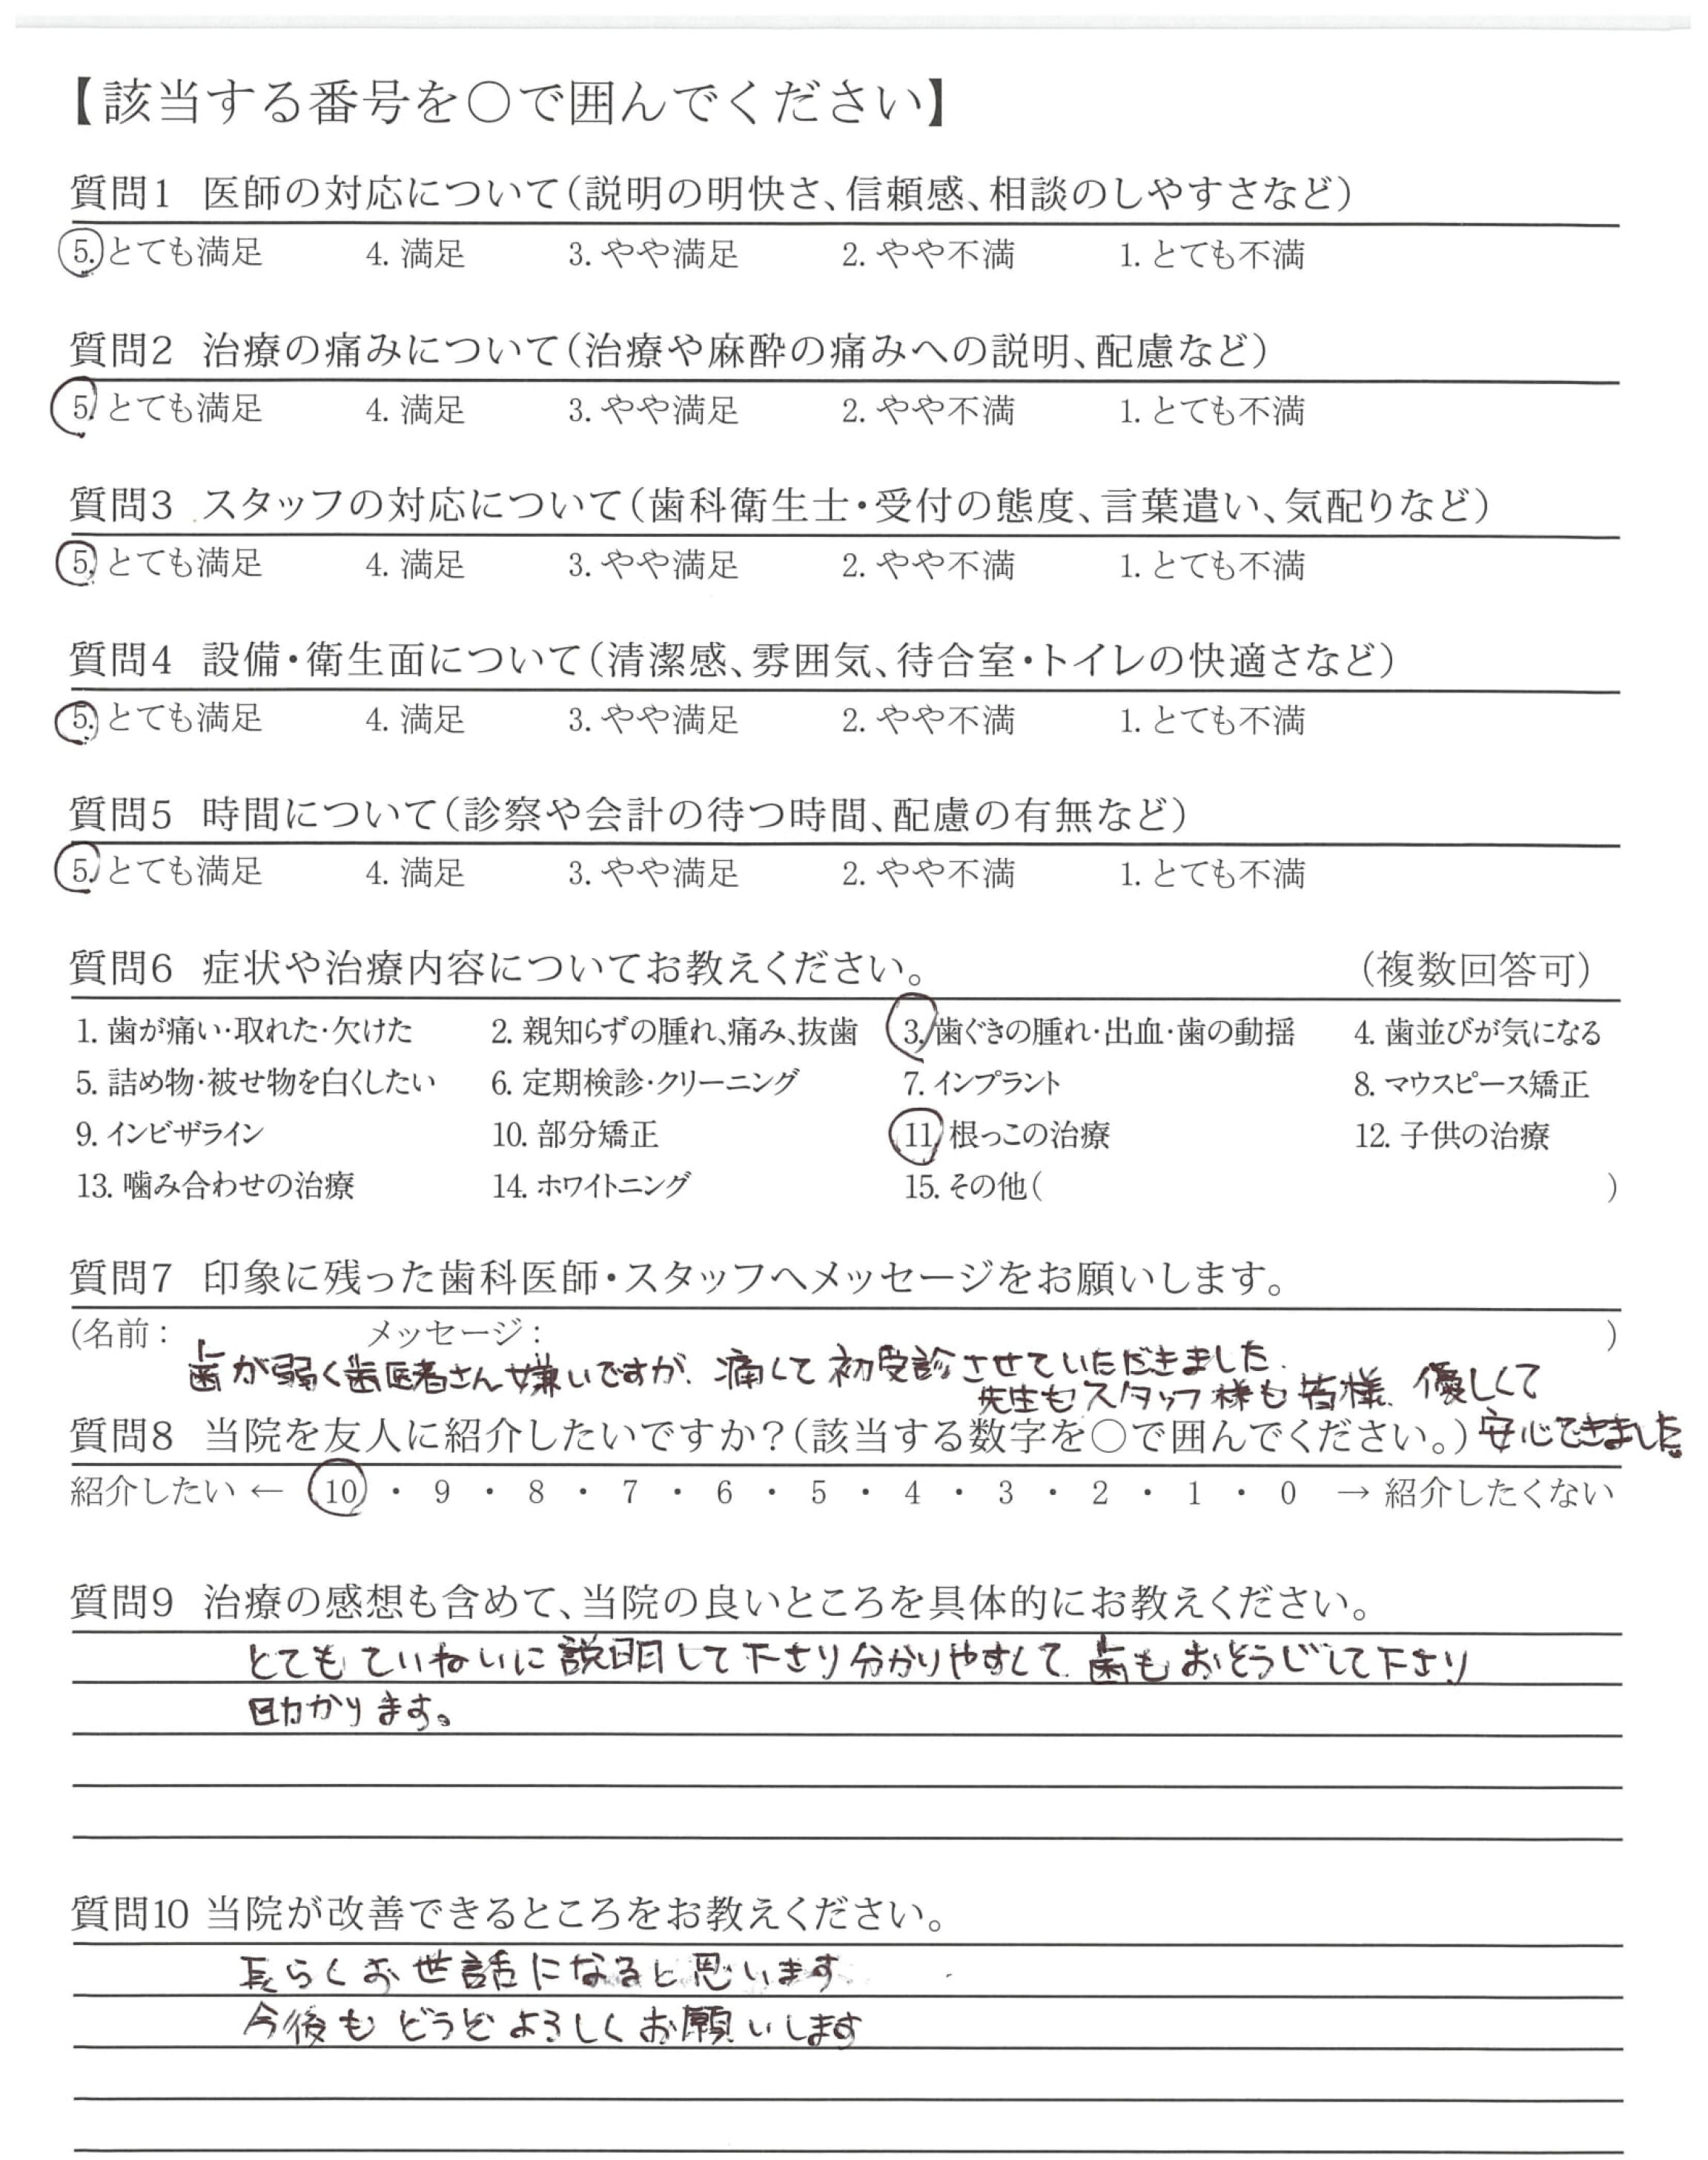 【該当する番号を○で囲んでください】
質問1 医師の対応について(説明の明快さ、信頼感、相談のしやすさなど)
5. とても満足 4. 満足 3. やや満足 2. やや不満 1. とても不満
質問2 治療の痛みについて(治療や麻酔の痛みへの説明、配慮など)
5. とても満足 4. 満足 3. やや満足 2. やや不満 1. とても不満
質問3 スタッフの対応について(歯科衛生士・受付の態度、言葉遣い、気配りなど)
5. とても満足 4. 満足 3. やや満足 2. やや不満 1. とても不満
質問4 設備・衛生面について(清潔感、雰囲気、待合室・トイレの快適さなど)
5. とても満足 4. 満足 3. やや満足 2. やや不満 1. とても不満
質問5 時間について(診察や会計の待つ時間、配慮の有無など)
5. とても満足 4. 満足 3. やや満足 2. やや不満 1. とても不満
質問6 症状や治療内容についてお教えください。 (複数回答可)
1. 歯が痛い・取れた・欠けた 2. 親知らずの腫れ、痛み、抜歯 3. 歯ぐきの腫れ・出血・歯の動揺 4. 歯並びが気になる
5. 詰め物・被せ物を白くしたい 6. 定期検診・クリーニング 7. インプラント 8. マウスピース矯正
9. インビザライン 10. 部分矯正 11. 根っこの治療 12. 子供の治療
13. 噛み合わせの治療 14. ホワイトニング 15. その他( )
質問7 印象に残った歯科医師・スタッフへメッセージをお願いします。
(名前: メッセージ: )
歯が弱く歯医者さん嫌いですが、痛くて初受診させていただきました。
先生もスタッフ様も皆様、優しくて
安心できました。
質問8 当院を友人に紹介したいですか?(該当する数字を○で囲んでください。)
紹介したい ← 10 ・ 9 ・ 8 ・ 7 ・ 6 ・ 5 ・ 4 ・ 3 ・ 2 ・ 1 ・ 0 → 紹介したくない
質問9 治療の感想も含めて、当院の良いところを具体的にお教えください。
とてもていねいに説明して下さり分かりやすくて、歯もおそうじして下さり
助かります。
質問10 当院が改善できるところをお教えください。
長らくお世話になると思います
今後もどうぞよろしくお願いします